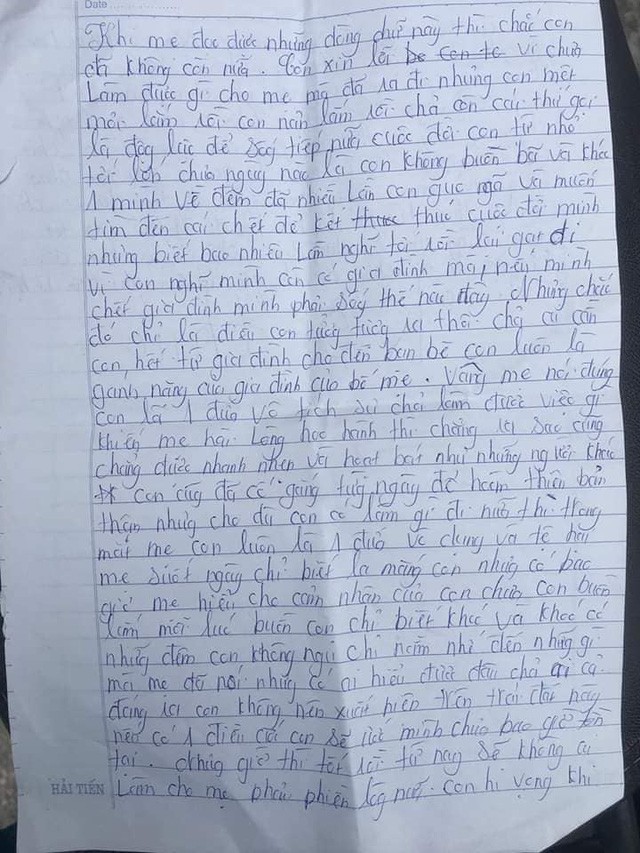 Date
Khi mẹ đọc được những dòng chữ này thì chắc con
đã không còn nữa. Con xin lỗi vì chưa
làm được gì cho mẹ mà đã ra đi nhưng con mệt
mỏi lắm rồi con nản lắm rồi chả còn cái thứ gọi
là động lực để sống tiếp nữa cuộc đời con từ nhỏ
tới lớn chưa ngày nào là con không buồn bã và khóc
1 mình về đêm đã nhiều lần con gục ngã và muốn
tìm đến cái chết để kết thúc cuộc đời mình
nhưng biết bao nhiêu lần nghĩ tới rồi lại gạt đi
vì con nghĩ mình còn có gia đình mà, nếu mình
chết gia đình mình phải sống thế nào đây. Nhưng chắc
đó chỉ là điều con tưởng tượng ra thôi chả ai cần
con, hết từ gia đình cho đến bạn bè con luôn là
gánh nặng của gia đình của bố mẹ. Vâng mẹ nói đúng
con là 1 đứa vô tích sự chả làm được việc gì
khiến mẹ hài lòng học hành thì chẳng ra sao cũng
chẳng được nhanh nhẹn và hoạt bát như những người khác
con cũng đã cố gắng từng ngày để hoàn thiện bản
thân nhưng cho dù con có làm gì đi nữa thì trong
mắt mẹ con luôn là 1 đứa vô dụng và tệ hại
mẹ suốt ngày chỉ biết la mắng con nhưng có bao
giờ mẹ hiểu cho cảm nhận của con chưa con buồn
lắm mỗi lúc buồn con chỉ biết khóc và khóc có
những đêm con không ngủ chỉ nằm nhớ đến những gì
mà mẹ đã nói nhưng có ai hiểu được đâu chả ai cả
đáng ra con không nên xuất hiện trên trái đất này
nếu có 1 điều ước con sẽ ước mình chưa bao giờ tồn
tại. Nhưng giờ thì tốt rồi từ nay sẽ không ai
HẢI TIẾN làm cho mẹ phải phiền lòng nữa. Con hi vọng khi